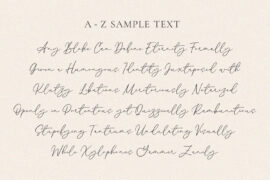 A - Z SAMPLE TEXT
Any Bloke Can Define Eternity Formally
Given a Humongous Identity Juxtaposed with
Klutzy Libations Meritoriously Notarized
Openly in Portentous yet Quizzically Rambunctious
Stupefying Tantrums Undulating Visually
While Xylophones Yammer Zanily